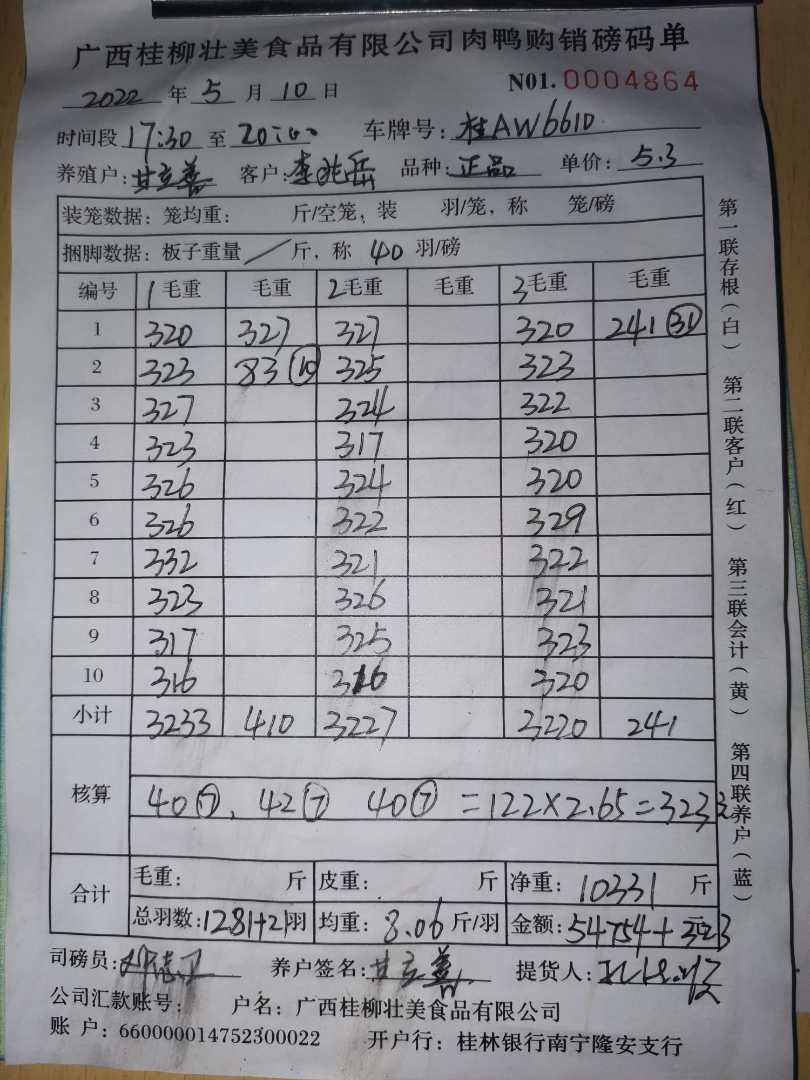 广西桂柳壮美食品有限公司肉鸭购销磅码单
2022 年 5 月 10 日 N01. 0004864
时间段 17:30 至 20:00 车牌号: 桂AW6610
养殖户: 甘立善 客户: 李兆岳 品种: 正品 单价: 5.3
装笼数据: 笼均重: 斤/空笼, 装 羽/笼, 称 笼/磅
捆脚数据: 板子重量 / 斤, 称 40 羽/磅
编号 1 毛重 毛重 2 毛重 毛重 3 毛重 毛重
1 320 327 327 320 241 (31)
2 323 83 (10) 325 323
3 327 324 322
4 323 317 320
5 326 324 320
6 326 322 329
7 332 321 322
8 323 326 321
9 317 325 323
10 316 316 320
小计 3233 410 3227 3220 241
核算 40⑦, 42⑦ 40⑦ =122×2.65=3233
合计 毛重: 斤 皮重: 斤 净重: 10331 斤
总羽数: 1281+21羽 均重: 8.06 斤/羽 金额: 54754+323
司磅员: 养户签名: 甘立善 提货人:
公司汇款账号: 户名: 广西桂柳壮美食品有限公司
账 户: 660000014752300022 开户行: 桂林银行南宁隆安支行
第一联存根(白) 第二联客户(红) 第三联会计(黄) 第四联养户(蓝)